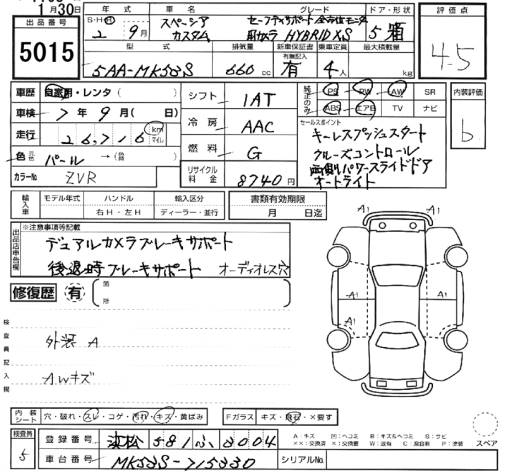 1月30日
出品番号
5015
年式 車名 グレード ドア・形状
S・H・R 2年 9月
スペーシア
カスタム
セーフティサポート 全方位モニタ
用カメラ HYBRID XS
5 箱
評価点
4.5
型式 排気量 新車保証書 乗車定員 最大積載量
有無記入
5AA-MK53S 660cc 有 4人 kg
車歴 自家用・レンタ( )
車検 7年 9月( 日)
走行 26,716 km マイル
色 元色 パール →(替 )
カラーNo. ZVR
シフト 1AT
冷房 AAC
燃料 G
リサイクル料金 8740円
純正のみ PS PW AW SR
ABS エアB TV ナビ
セールスポイント
キーレスプッシュスタート
クルーズコントロール
両側パワースライドドア
オートライト
内装評価
b
輸入車 モデル年式 ハンドル 輸入区分
年 右H・左H ディーラー・並行
書類有効期限
月 日迄
出品店申告欄
※注意事項等記載
デュアルカメラブレーキサポート
後退時ブレーキサポート オーディオレス穴
修復歴 有 箇所
検査員記入欄
外装 A
AWキズ
A1 A1
A1 A1
内装シート 穴・破れ・スレ・コゲ・汚れ・キズ・黄ばみ
Fガラス キズ・飛石・×要す
検査員 5
登録番号 浜松 581 ふ 3004
車台番号 MK53S-715330
シリアルNo.
A:キズ U:ヘコミ B:キズ&ヘコミ S:サビ
××:交換済 ×:交換要 W:波有 C:腐食 P:塗装
スペア